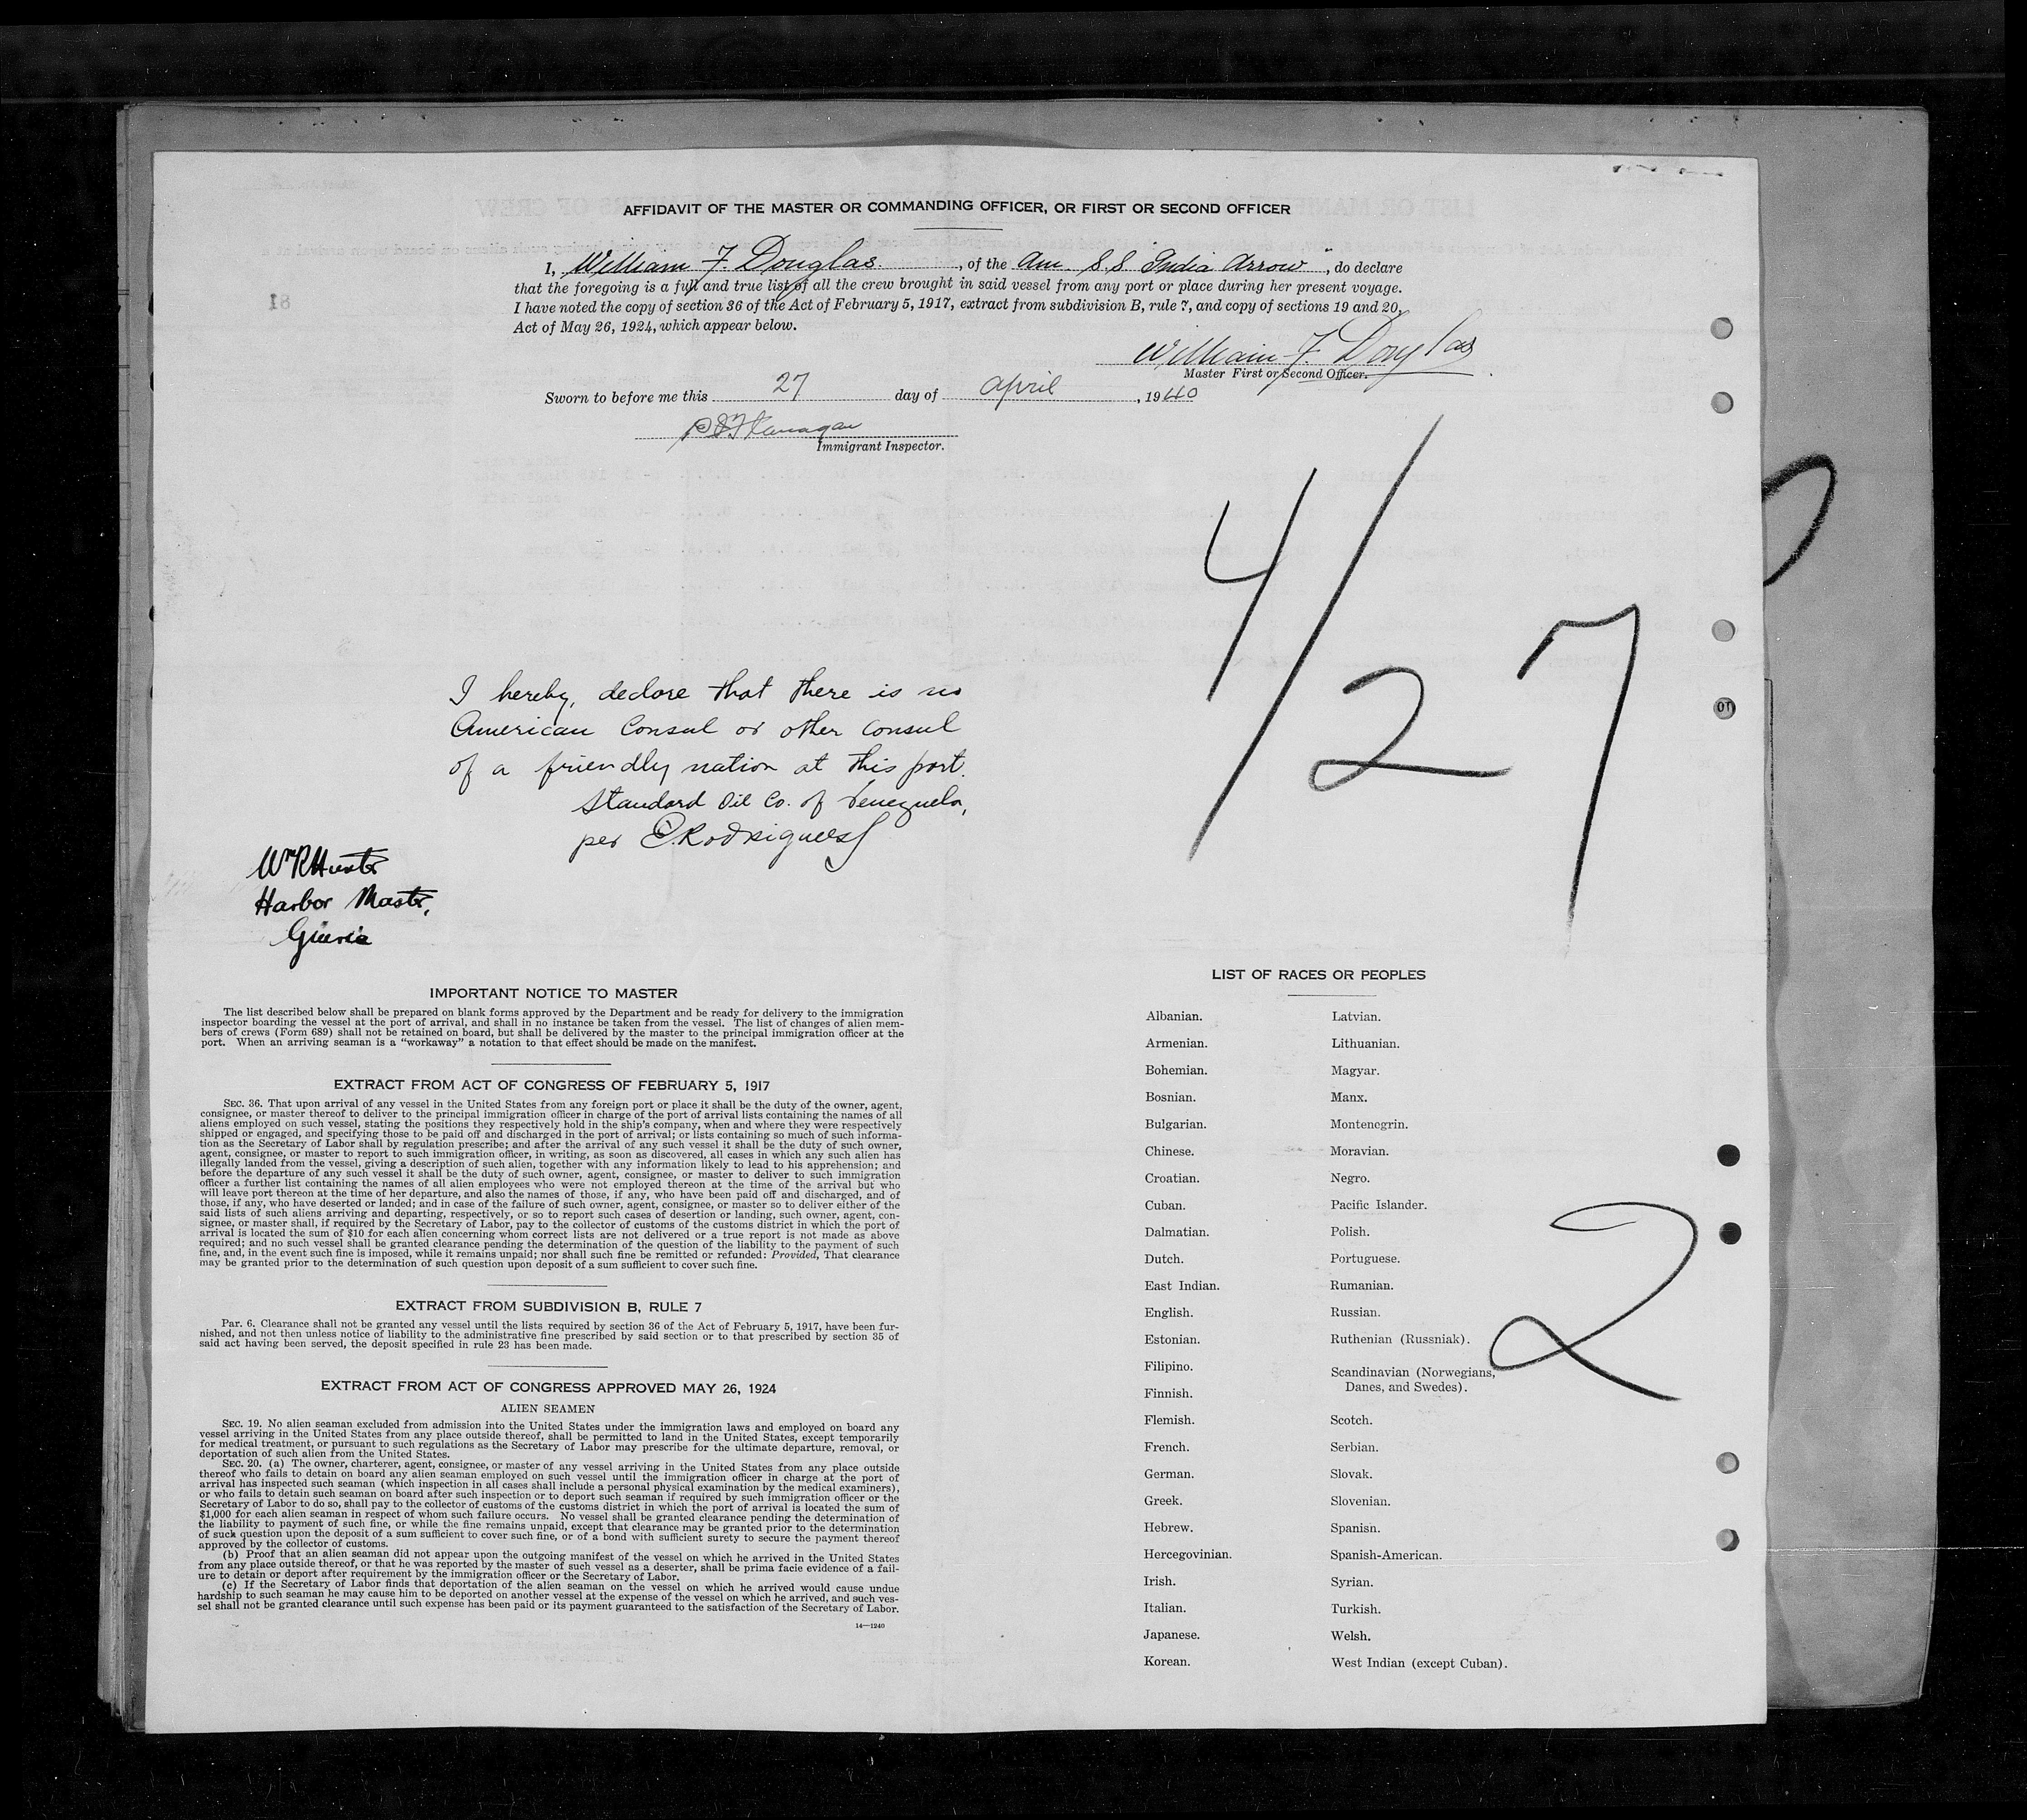 AFFIDAVIT OF THE MASTER OR COMMANDING OFFICER, OR FIRST OR SECOND OFFICER
I, William F. Douglas, of the Am S.S. "India Arrow", do declare
that the foregoing is a full and true list of all the crew brought in said vessel from any port or place during her present voyage.
I have noted the copy of section 36 of the Act of February 5, 1917, extract from subdivision B, rule 7, and copy of sections 19 and 20,
Act of May 26, 1924, which appear below.
William F. Douglas
Master First or Second Officer.
Sworn to before me this 27 day of April, 1940
Flanagan
Immigrant Inspector.
4/27
I hereby, declare that there is no
American Consul or other consul
of a friendly nation at this port.
Standard Oil Co. of Venezuela,
per
Harbor Master,
IMPORTANT NOTICE TO MASTER
The list described below shall be prepared on blank forms approved by the Department and be ready for delivery to the immigration
inspector boarding the vessel at the port of arrival, and shall in no instance be taken from the vessel. The list of changes of alien mem-
bers of crews (Form 689) shall not be retained on board, but shall be delivered by the master to the principal immigration officer at the
port. When an arriving seaman is a "workaway" a notation to that effect should be made on the manifest.
EXTRACT FROM ACT OF CONGRESS OF FEBRUARY 5, 1917
SEC. 36. That upon arrival of any vessel in the United States from any foreign port or place it shall be the duty of the owner, agent,
consignee, or master thereof to deliver to the principal immigration officer in charge of the port of arrival lists containing the names of all
aliens employed on such vessel, stating the positions they respectively hold in the ship's company, when and where they were respectively
shipped or engaged, and specifying those to be paid off and discharged in the port of arrival; or lists containing so much of such informa-
tion as the Secretary of Labor shall by regulation prescribe; and after the arrival of any such vessel it shall be the duty of such owner,
agent, consignee, or master to report to such immigration officer, in writing, as soon as discovered, all cases in which any such alien has
illegally landed from the vessel, giving a description of such alien, together with any information likely to lead to his apprehension; and
before the departure of any such vessel it shall be the duty of such owner, agent, consignee, or master to deliver to such immigration
officer a further list containing the names of all alien employees who were not employed thereon at the time of the arrival but who
will leave port thereon at the time of her departure, and also the names of those, if any, who have been paid off and discharged, and of
those, if any, who have deserted or landed; and in case of the failure of such owner, agent, consignee, or master so to deliver either of the
said lists of such aliens arriving and departing, respectively, or so to report such cases of desertion or landing, such owner, agent, con-
signee, or master shall, if required by the Secretary of Labor, pay to the collector of customs of the customs district in which the port of
arrival is located the sum of $10 for each alien concerning whom correct lists are not delivered or a true report is not made as above
required; and no such vessel shall be granted clearance pending the determination of the question of the liability to the payment of such
fine, and, in the event such fine is imposed, while it remains unpaid; nor shall such fine be remitted or refunded: Provided, That clearance
may be granted prior to the determination of such question upon deposit of a sum sufficient to cover such fine.
EXTRACT FROM SUBDIVISION B, RULE 7
Par. 6. Clearance shall not be granted any vessel until the lists required by section 36 of the Act of February 5, 1917, have been fur-
nished, and not then unless notice of liability to the administrative fine prescribed by said section or to that prescribed by section 35 of
said act having been served, the deposit specified in rule 23 has been made.
EXTRACT FROM ACT OF CONGRESS APPROVED MAY 26, 1924
ALIEN SEAMEN
SEC. 19. No alien seaman excluded from admission into the United States under the immigration laws and employed on board any
vessel arriving in the United States from any place outside thereof, shall be permitted to land in the United States, except temporarily
for medical treatment, or pursuant to such regulations as the Secretary of Labor may prescribe for the ultimate departure, removal, or
deportation of such alien from the United States.
SEC. 20. (a) The owner, charterer, agent, consignee, or master of any vessel arriving in the United States from any place outside
thereof who fails to detain on board any alien seaman employed on such vessel until the immigration officer in charge at the port of
arrival has inspected such seaman (which inspection in all cases shall include a personal physical examination by the medical examiners),
or who fails to detain such seaman on board after such inspection or to deport such seaman if required by such immigration officer or the
Secretary of Labor to do so, shall pay to the collector of customs of the customs district in which the port of arrival is located the sum of
$1,000 for each alien seaman in respect of whom such failure occurs. No vessel shall be granted clearance pending the determination of
the liability to payment of such fine, or while the fine remains unpaid, except that clearance may be granted prior to the determination
of such question upon the deposit of a sum sufficient to cover such fine, or of a bond with sufficient surety to secure the payment thereof
approved by the collector of customs.
(b) Proof that an alien seaman did not appear upon the outgoing manifest of the vessel on which he arrived in the United States
from any place outside thereof, or that he was reported by the master of such vessel as a deserter, shall be prima facie evidence of a fail-
ure to detain or deport after requirement by the immigration officer or the Secretary of Labor.
(c) If the Secretary of Labor finds that deportation of the alien seaman on the vessel on which he arrived would cause undue
hardship to such seaman he may cause him to be deported on another vessel at the expense of the vessel on which he arrived, and such ves-
sel shall not be granted clearance until such expense has been paid or its payment guaranteed to the satisfaction of the Secretary of Labor.
14—1240
LIST OF RACES OR PEOPLES
Albanian.
Armenian.
Bohemian.
Bosnian.
Bulgarian.
Chinese.
Croatian.
Cuban.
Dalmatian.
Dutch.
East Indian.
English.
Estonian.
Filipino.
Finnish.
Flemish.
French.
German.
Greek.
Hebrew.
Hercegovinian.
Irish.
Italian.
Japanese.
Korean.
Latvian.
Lithuanian.
Magyar.
Manx.
Montenegrin.
Moravian.
Negro.
Pacific Islander.
Polish.
Portuguese.
Rumanian.
Russian.
Ruthenian (Russniak).
Scandinavian (Norwegians,
Danes, and Swedes).
Scotch.
Serbian.
Slovak.
Slovenian.
Spanish.
Spanish-American.
Syrian.
Turkish.
Welsh.
West Indian (except Cuban).
2